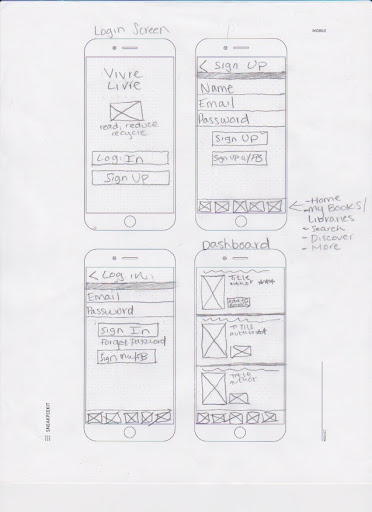 Login Screen
MOBILE
Vivre
Livre
read, reduce
recycle
Log In
Sign Up
< Sign Up
Name
Email
Password
Sign Up
Sign up w/FB
- Home
- My Books/
Libraries
- Search
- Discover
- More
< Log in
Email
Password
Sign In
Forgot Password
Sign in w/FB
Dashboard
Title
author
Title
author
Title
author
SNEAKPEEKIT